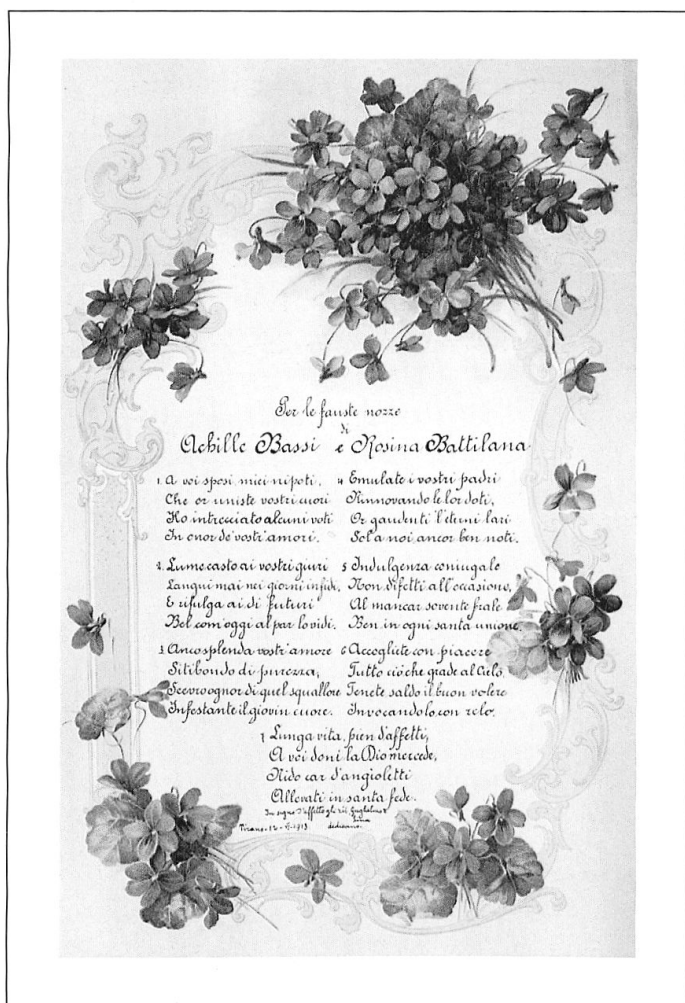 Per le fauste nozze
di
Achille Bassi e Rosina Battilana
1. A voi sposi, miei nipoti,
Che or uniste vostri cuori
Ho intrecciato alcuni voti
In onor de' vostri amori.
2. Lume casto ai vostri giuri
Langui mai nei giorni infidi,
E rifulga ai dì futuri
Bel com'oggi al par lo vidi.
3. Ancor splenda vostr'amore
Sitibondo di purezza,
Scevro ognor di quel squallore
Infestante il giovin cuore.
4 Emulate i vostri padri
Rinnovando le lor doti,
Or gaudenti l'eterni lari
Sol a noi, ancor ben noti.
5 Indulgenza coniugale
Non difetti all'occasione,
Al mancar sovente frale
Ben in ogni santa unione.
6 Accogliete con piacere
Tutto ciò che grade al Cielo,
Tenete saldo il buon volere
Invocandolo, con zelo.
7 Lunga vita, pien d'affetti,
A voi doni la Dio mercede,
Nido car d'angioletti
Allevati in santa fede.
In segno d'affetto gli zii Guglielmo e
dedicano.
Tirano - 12 - 1913